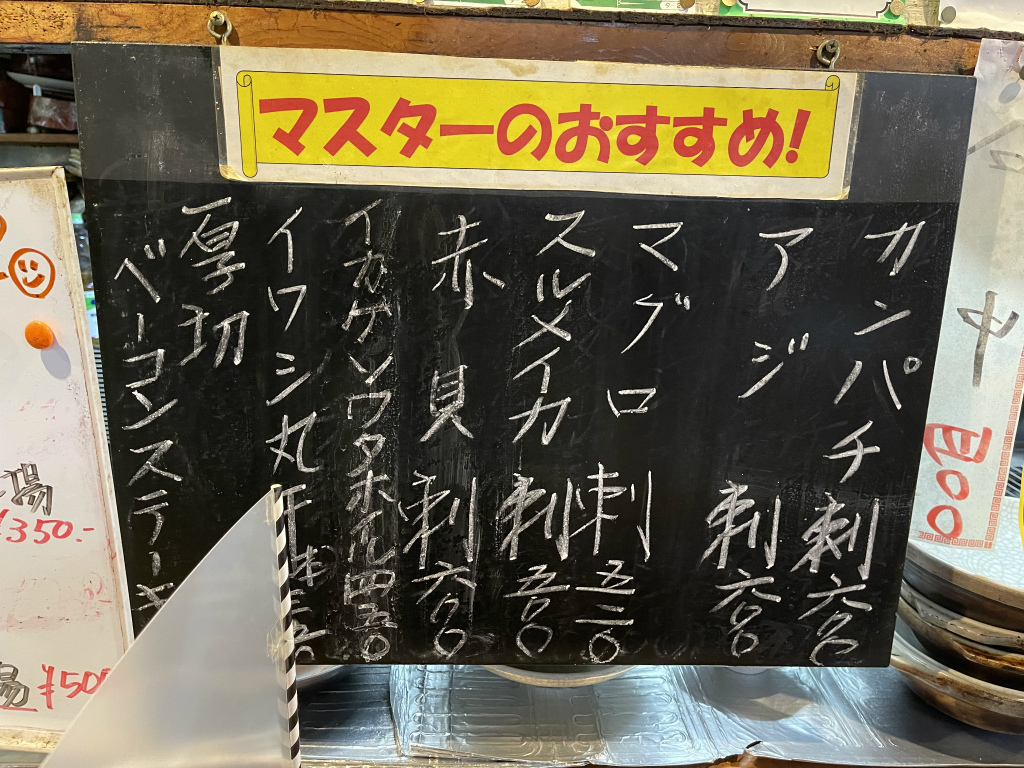 マスターのおすすめ!
カンパチ刺六〇〇
アジ刺六〇〇
マグロ刺五二〇
スルメイカ刺五〇〇
赤貝刺六〇〇
イカゲソワタホイル四五〇
イワシ丸干
厚切
ベーコンステーキ
中
目
00
場
¥350.-
場
¥500